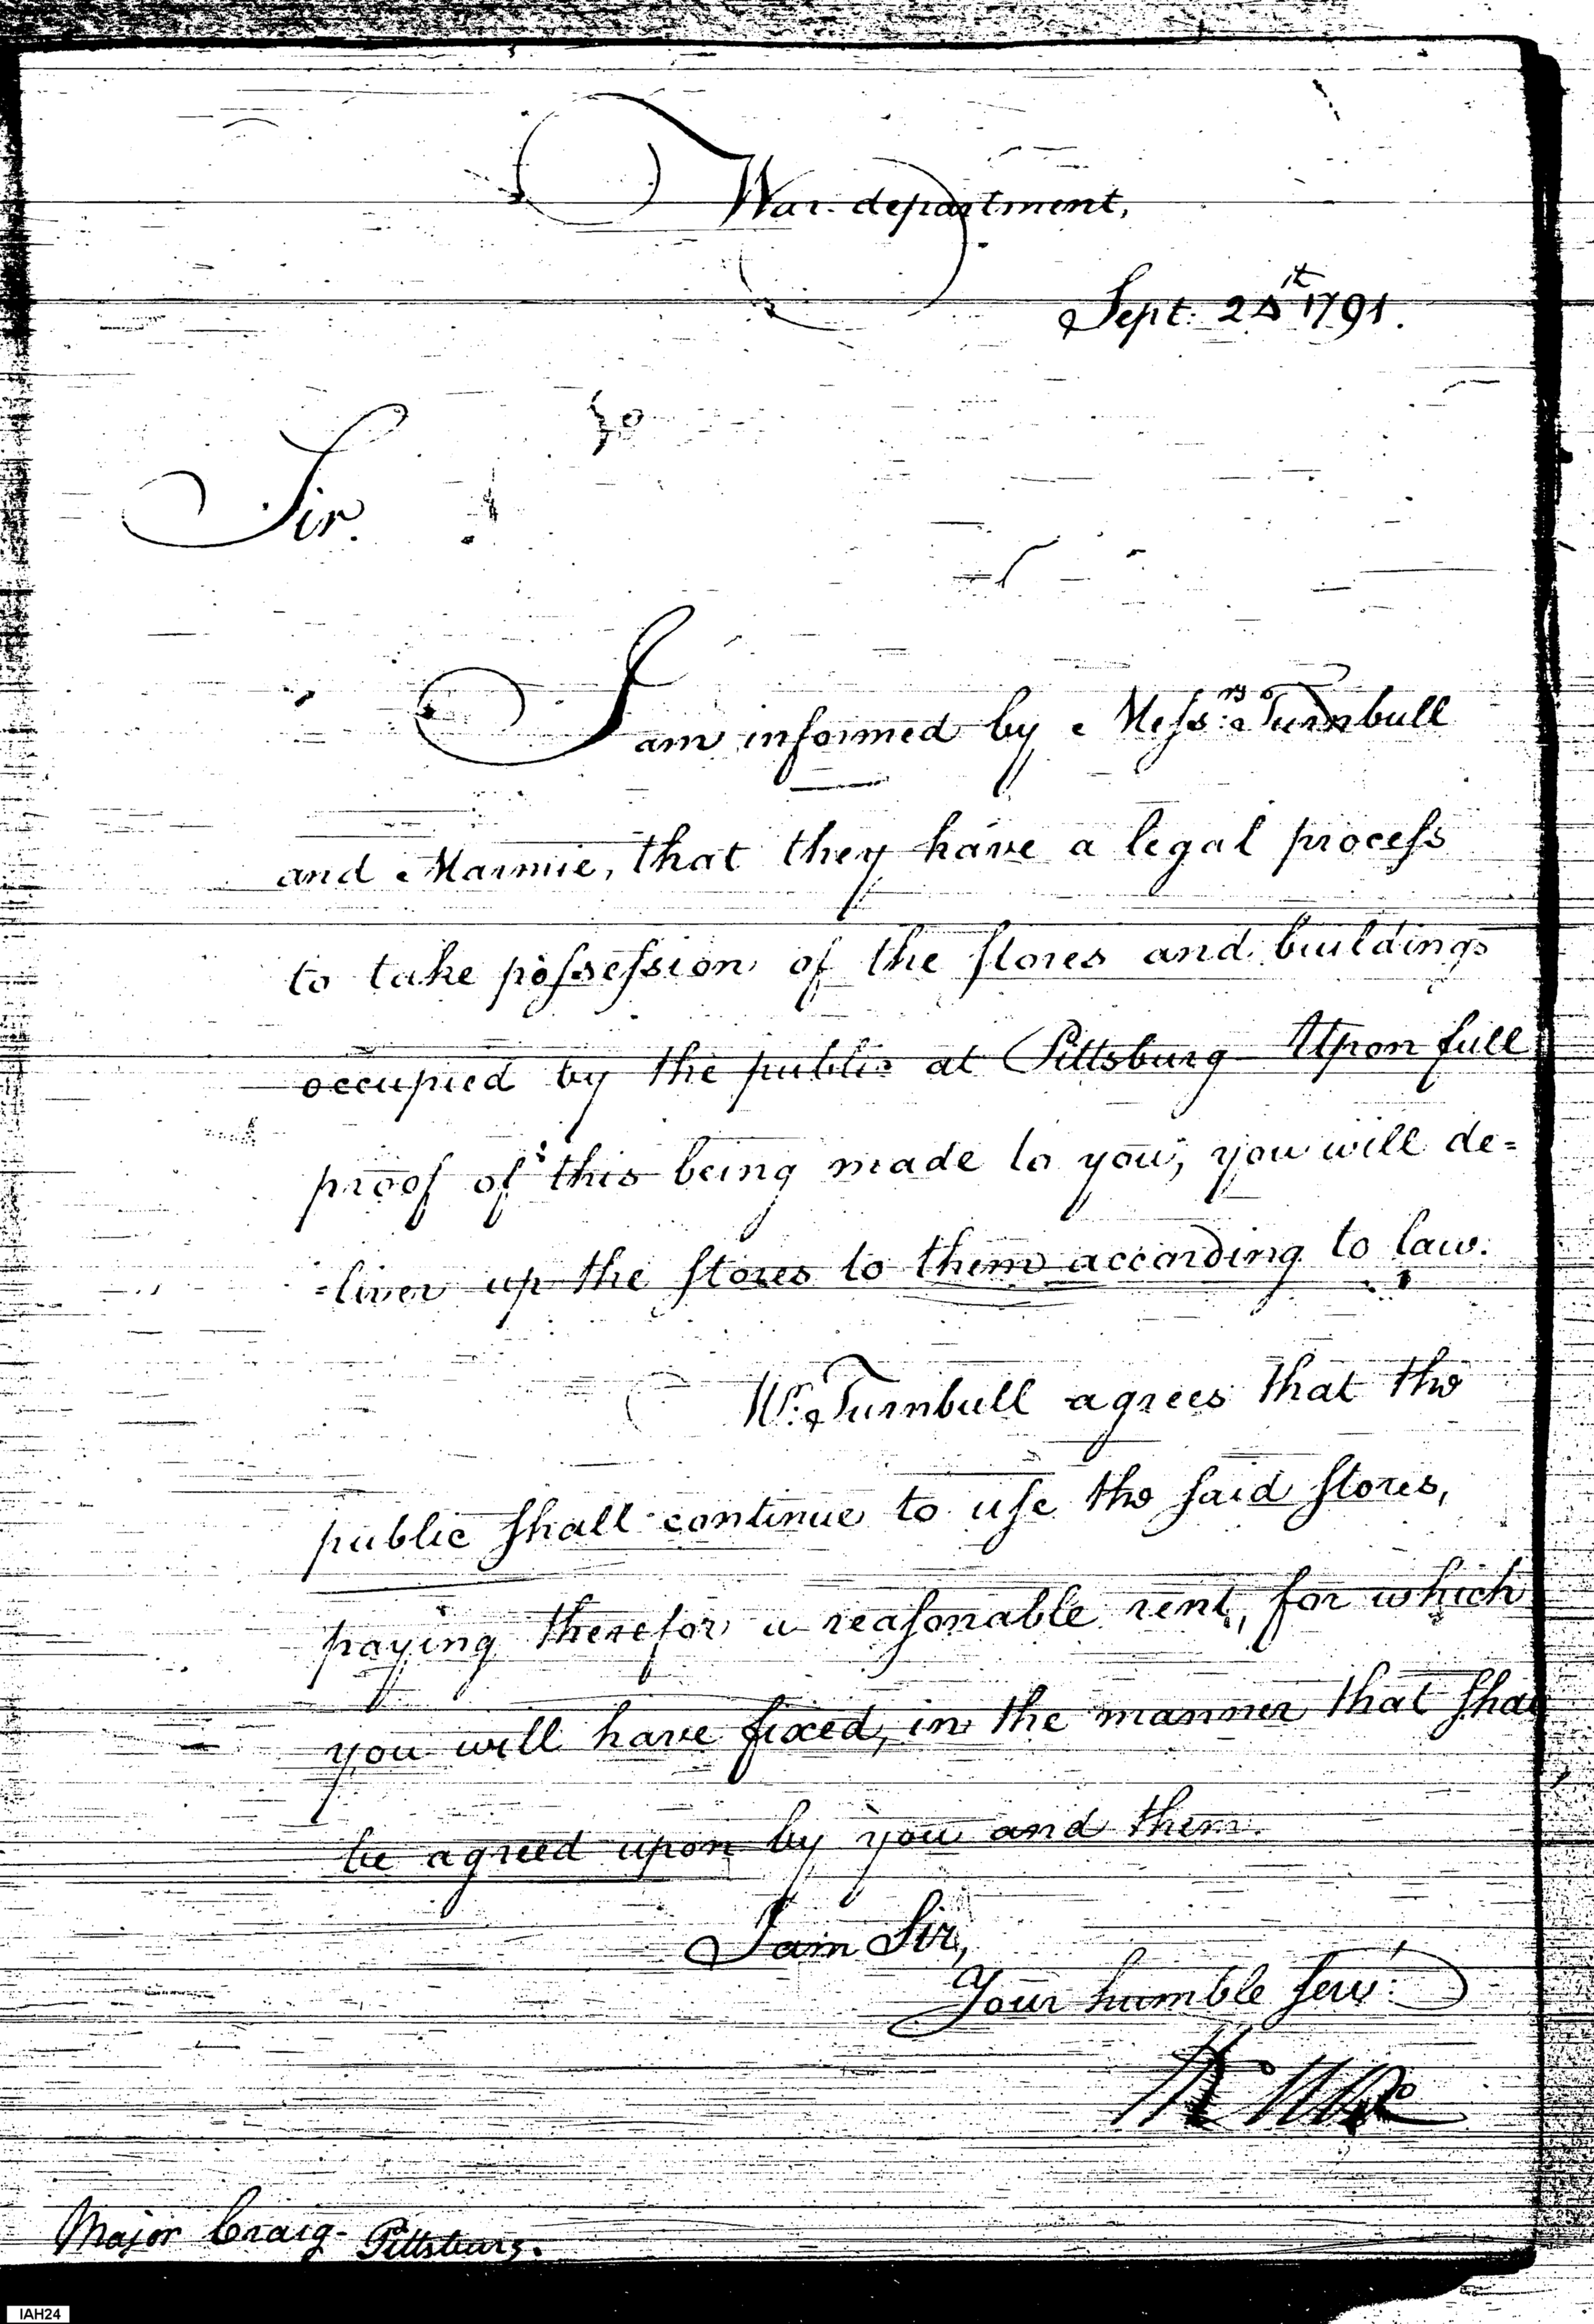 War department,
Sept: 24th 1791.
Sir.
I am informed by Messrs: Turnbull
and Marmie, that they have a legal process
to take possession of the stores and buildings
occupied by the public at Pittsburg Upon full
proof of this being made to you, you will de=
=liver up the stores to them according to law.
Mr. Turnbull agrees that the
public shall continue to use the said stores,
paying therefor a reasonable rent, for which
you will have fixed, in the manner that shal
be agreed upon by you and them.
I am Sir,
Your humble serv:t
Major Craig- Pittsburg.
IAH24